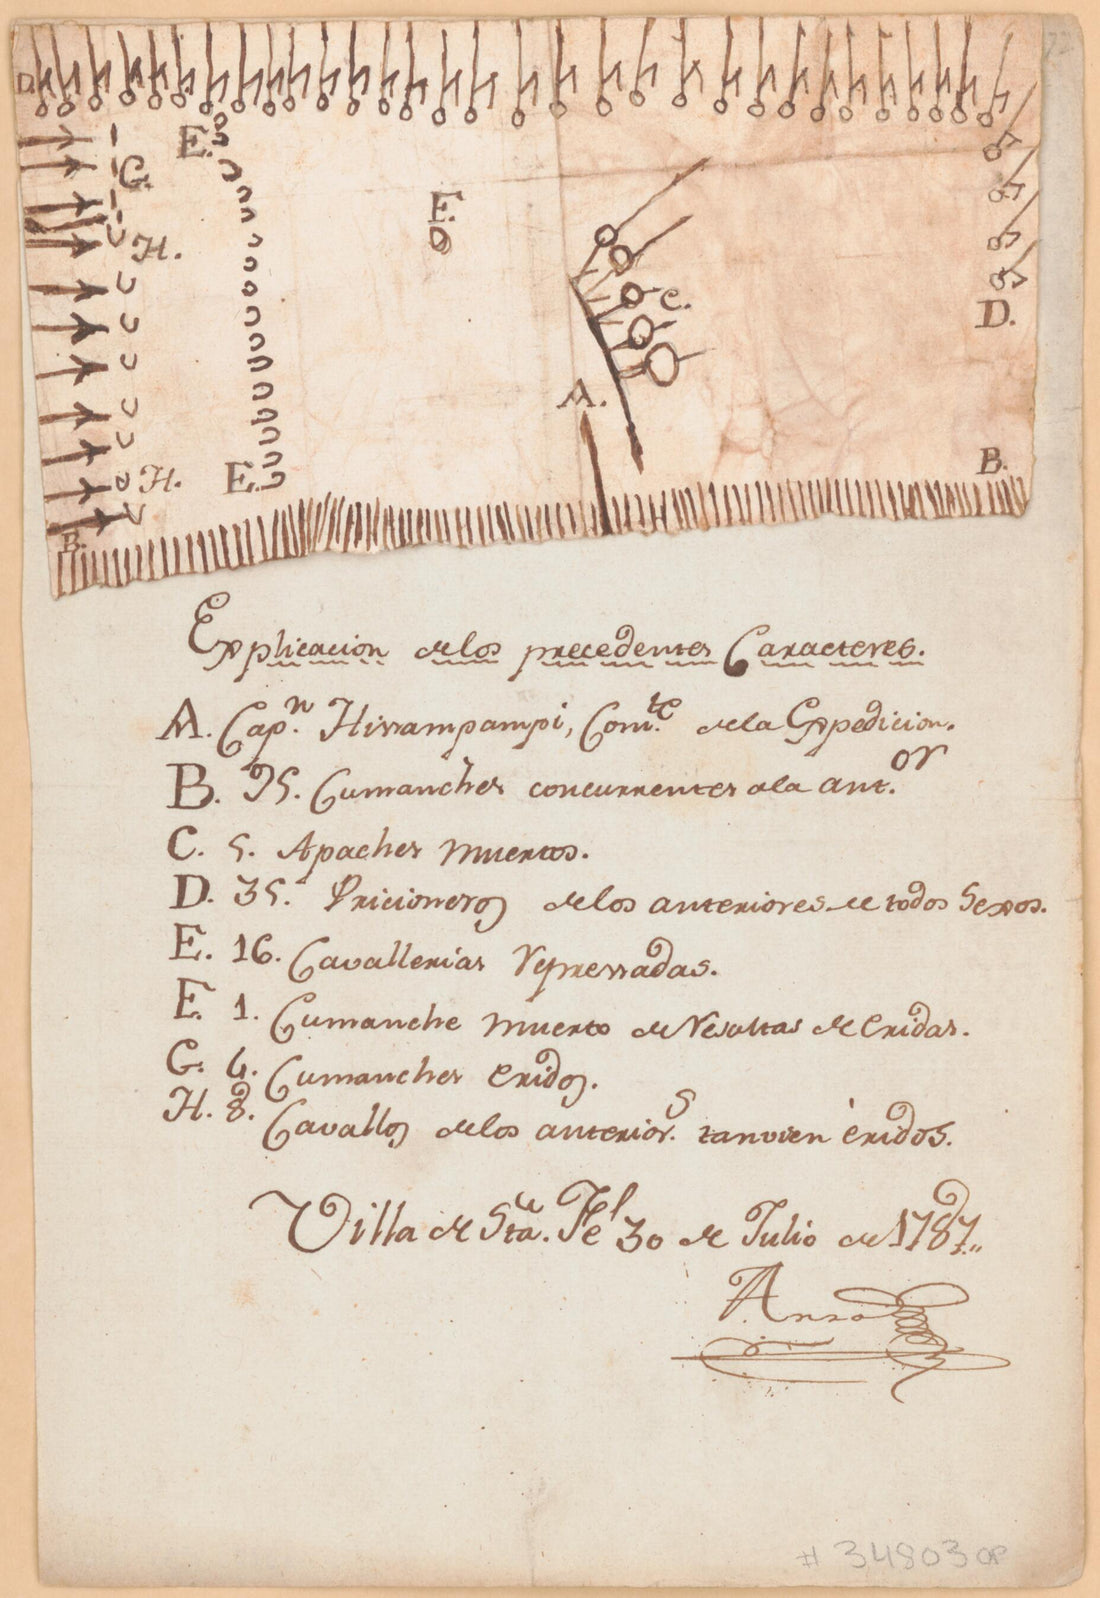 D.
E.
G.
F.
H.
C.
D.
A.
H.
E.
B.
B.
Explicacion delos precedentes Caracteres.
A. Cap.n Hisrampampi, Com.te dela Expedicion.
B. 95. Cumanches concurrentes ala ant.or
C. 5. Apaches Muertos.
D. 35. Pricioneros delos anteriores de todos Sexos.
E. 16. Cavallerias represadas.
F. 1. Cumanche muerto de Resultas de eridas.
G. 4. Cumanches eridos.
H. 8. Cavallos delos anterior.s tanvien eridos.
Villa de Sta. Fe 30 de Julio de 1787.
Anza
# 34803